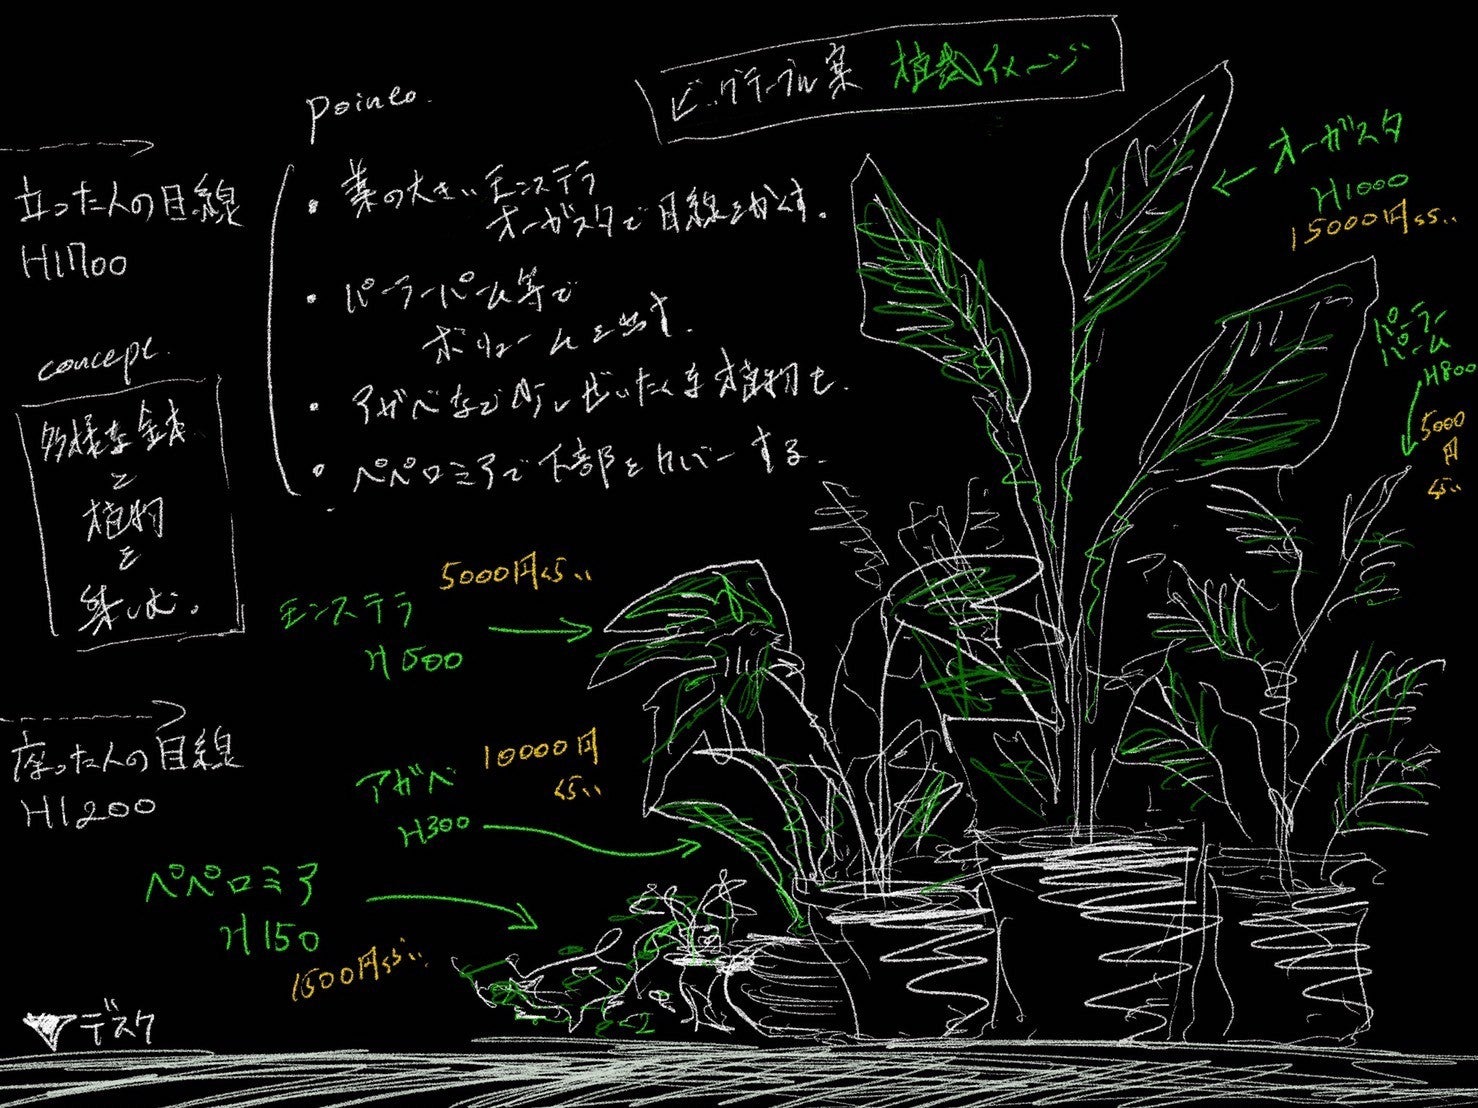 ビッグテーブル案 植栽イメージ
point
立った人の目線
H1700
・葉の大きいモンステラ
オーガスタで目線をかくす。
・パーラーパーム等で
ボリュームを出す。
・アガベなど少しぜいたくな植物も。
・ペペロミアで下部をカバーする。
concept.
多様な鉢
と
植物
を
楽しむ。
オーガスタ
H1000
15000円くらい
パーラー
パーム
H800
5000
円
くらい
モンステラ
H500
5000円くらい
座った人の目線
H1200
アガベ
H300
10000円
くらい
ペペロミア
H150
1500円くらい
▼デスク